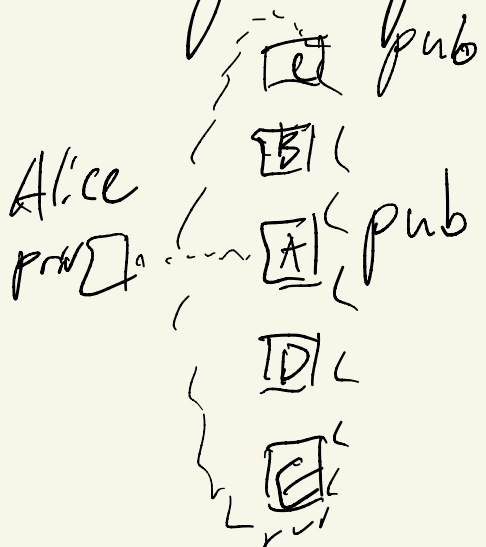 pub
B
Alice
priv
A
pub
D
C